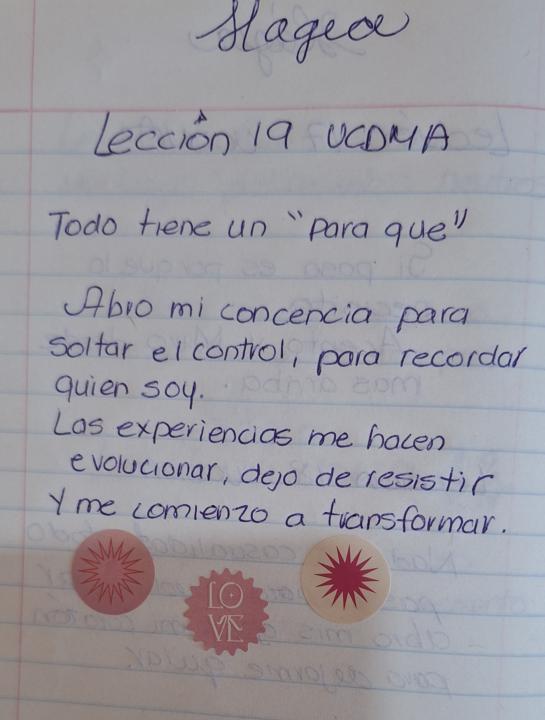 Magea
Lección 19 UCDMA
Todo tiene un "para que"
Abro mi concencia para
soltar el control, para recordar
quien soy.
Las experiencias me hacen
evolucionar, dejo de resistir
y me comienzo a transformar.
LO
VE